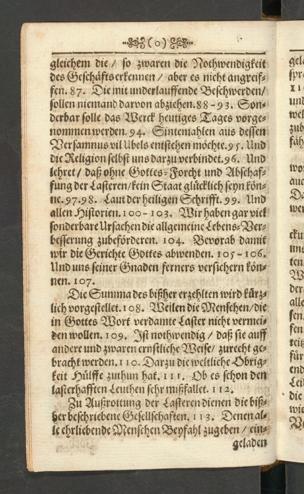 (0)
gleichem die / so zwaren die Nothwendigkeit
des Geschäfts erkennen / aber es nicht angreif-
fen. 87. Die mit underlauffende Beschwerden /
sollen niemand darvon abziehen. 88-93. Son-
derbar solle das Werck heutiges Tages vorge-
nommen werden. 94. Sintemahlen aus dessen
Versamnus vil Ubels entstehen möchte. 95. Und
die Religion selbst uns darzu verbindet. 96. Und
lehret / daß ohne Gottes-Forcht und Abschaf-
fung der Lasteren / kein Staat glücklich seyn kön-
ne. 97. 98. Laut der heiligen Schrifft. 99. Und
allen Historien. 100-103. Wir haben gar viel
sonderbare Ursachen die allgemeine Lebens-Ver-
besserung zubeförderen. 104. Bevorab damit
wir die Gerichte Gottes abwenden. 105-106.
Und uns seiner Gnaden ferners versichern kön-
nen. 107.
Die Summa des bißher erzehlten wird kürtz-
lich vorgestellet. 108. Weilen die Menschen / die
in Gottes Wort verdamte Laster nicht vermei-
den wollen. 109. Ist nothwendig / daß sie auff
andere und zwaren ernstliche Weise / zurecht ge-
bracht werden. 110. Darzu die weltliche Obrig-
keit Hülffe zuthun hat. 111. Ob es schon den
lasterhafften Leuthen sehr mißfallet. 112.
Zu Außrottung der Lasteren dienen die biß-
her beschriebene Gesellschafften. 113. Denen al-
le ehrliebende Menschen Beyfahl zugeben / ein-
geladen